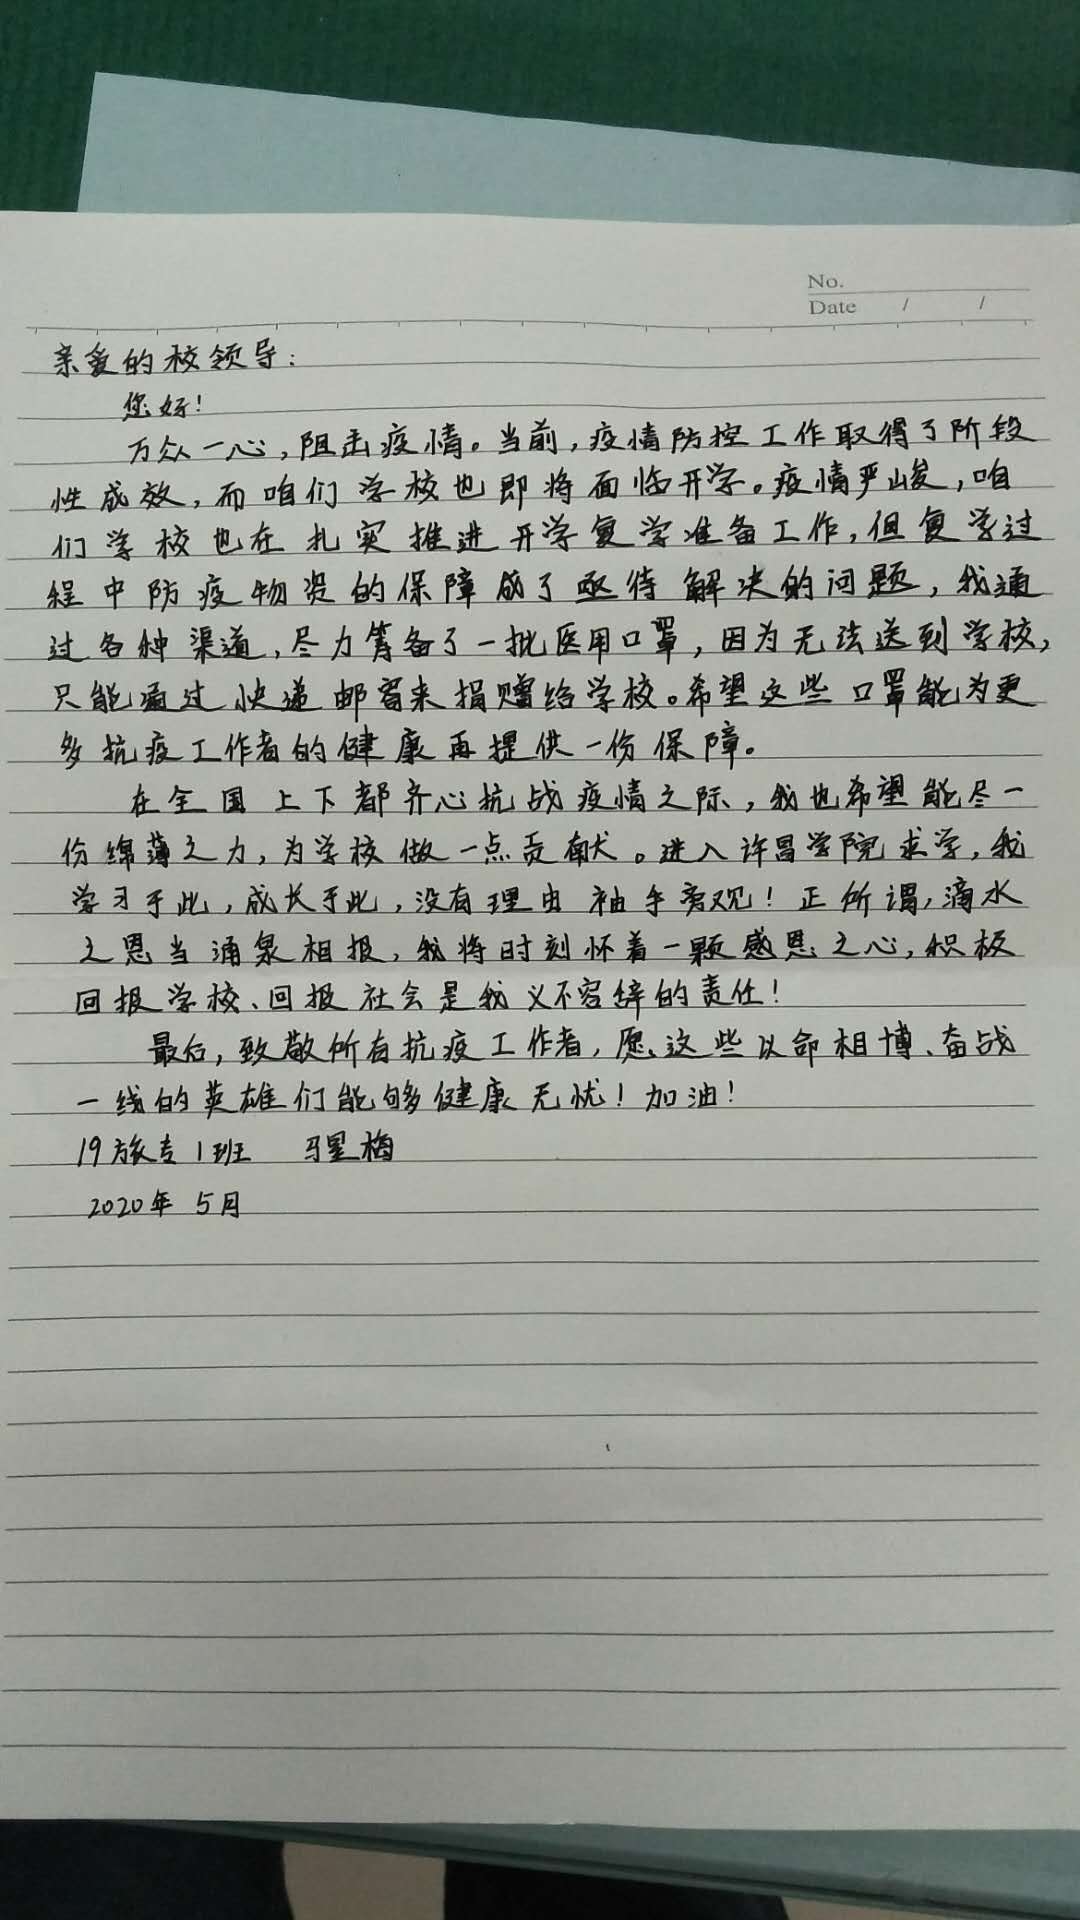 No.
Date / /
亲爱的校领导:
您好!
万众一心,阻击疫情。当前,疫情防控工作取得了阶段
性成效,而咱们学校也即将面临开学。疫情严峻,咱
们学校也在扎实推进开学复学准备工作,但复学过
程中防疫物资的保障成了亟待解决的问题,我通
过各种渠道,尽力筹备了一批医用口罩,因为无法送到学校,
只能通过快递邮寄来捐赠给学校。希望这些口罩能为更
多抗疫工作者的健康再提供一份保障。
在全国上下都齐心抗战疫情之际,我也希望能尽一
份绵薄之力,为学校做一点贡献。进入许昌学院求学,我
学习于此,成长于此,没有理由袖手旁观!正所谓,滴水
之恩当涌泉相报,我将时刻怀着一颗感恩之心,积极
回报学校、回报社会是我义不容辞的责任!
最后,致敬所有抗疫工作者,愿这些以命相博、奋战
一线的英雄们能够健康无忧!加油!
19旅专1班 梅
2020年5月